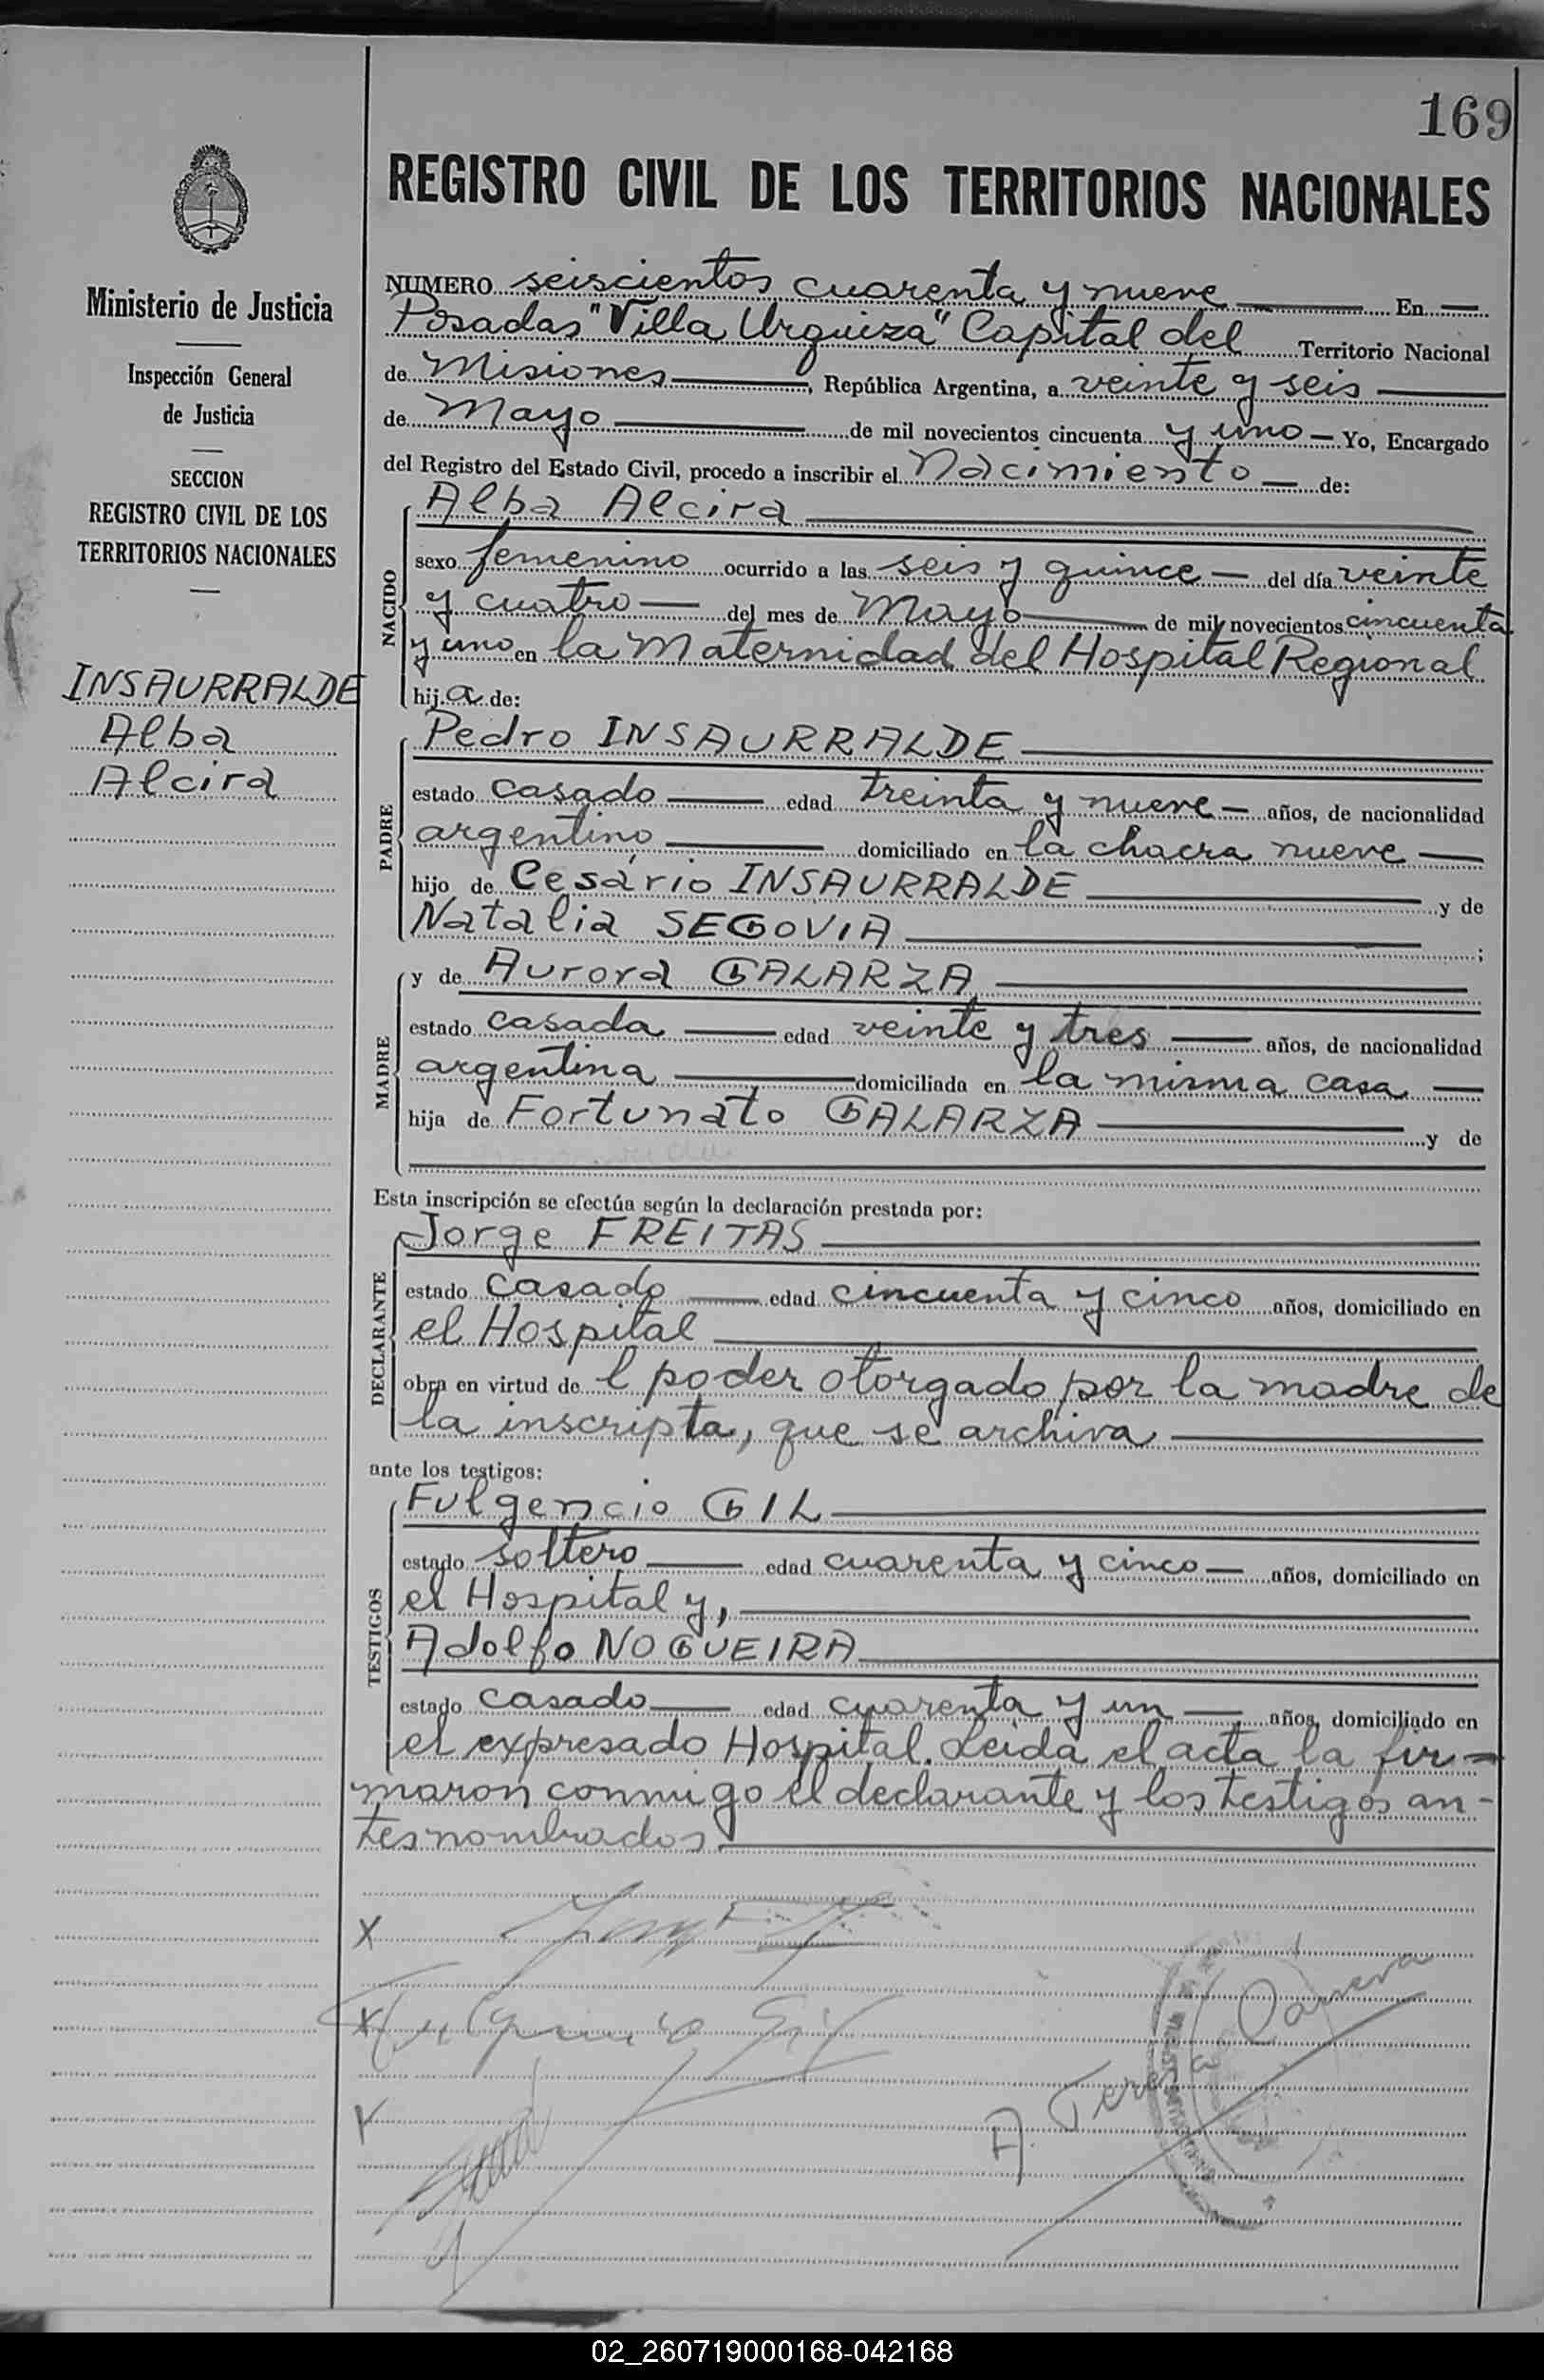 169
REGISTRO CIVIL DE LOS TERRITORIOS NACIONALES
Ministerio de Justicia
Inspección General
de Justicia
SECCION
REGISTRO CIVIL DE LOS
TERRITORIOS NACIONALES
INSAURRALDE
Alba
Alcira
NUMERO seiscientos cuarenta y nueve En
Posadas "Villa Urquiza" Capital del Territorio Nacional
de Misiones, República Argentina, a veinte y seis
de Mayo de mil novecientos cincuenta y uno Yo, Encargado
del Registro del Estado Civil, procedo a inscribir el Nacimiento de:
NACIDO
Alba Alcira
sexo femenino ocurrido a las seis y quince del día veinte
y cuatro del mes de Mayo de mil novecientos cincuenta
y uno en la Maternidad del Hospital Regional
hij a de:
PADRE
Pedro INSAURRALDE
estado casado edad treinta y nueve años, de nacionalidad
argentino domiciliado en la chacra nueve
hijo de Cesário INSAURRALDE y de
Natalia SEGOVIA ;
MADRE
y de Aurora GALARZA
estado casada edad veinte y tres años, de nacionalidad
argentina domiciliada en la misma casa
hija de Fortunato GALARZA y de
Esta inscripción se efectúa según la declaración prestada por:
DECLARANTE
Jorge FREITAS
estado casado edad cincuenta y cinco años, domiciliado en
el Hospital
obra en virtud de l poder otorgado por la madre de
la inscripta, que se archiva
ante los testigos:
TESTIGOS
Fulgencio GIL
estado soltero edad cuarenta y cinco años, domiciliado en
el Hospital y,
Adolfo NOGUEIRA
estado casado edad cuarenta y un años, domiciliado en
el expresado Hospital. Leída el acta la fir=
maron conmigo el declarante y los testigos an-
tes nombrados
X
X Fulgencio Gil
A. Teresa Carrera
02_260719000168-042168